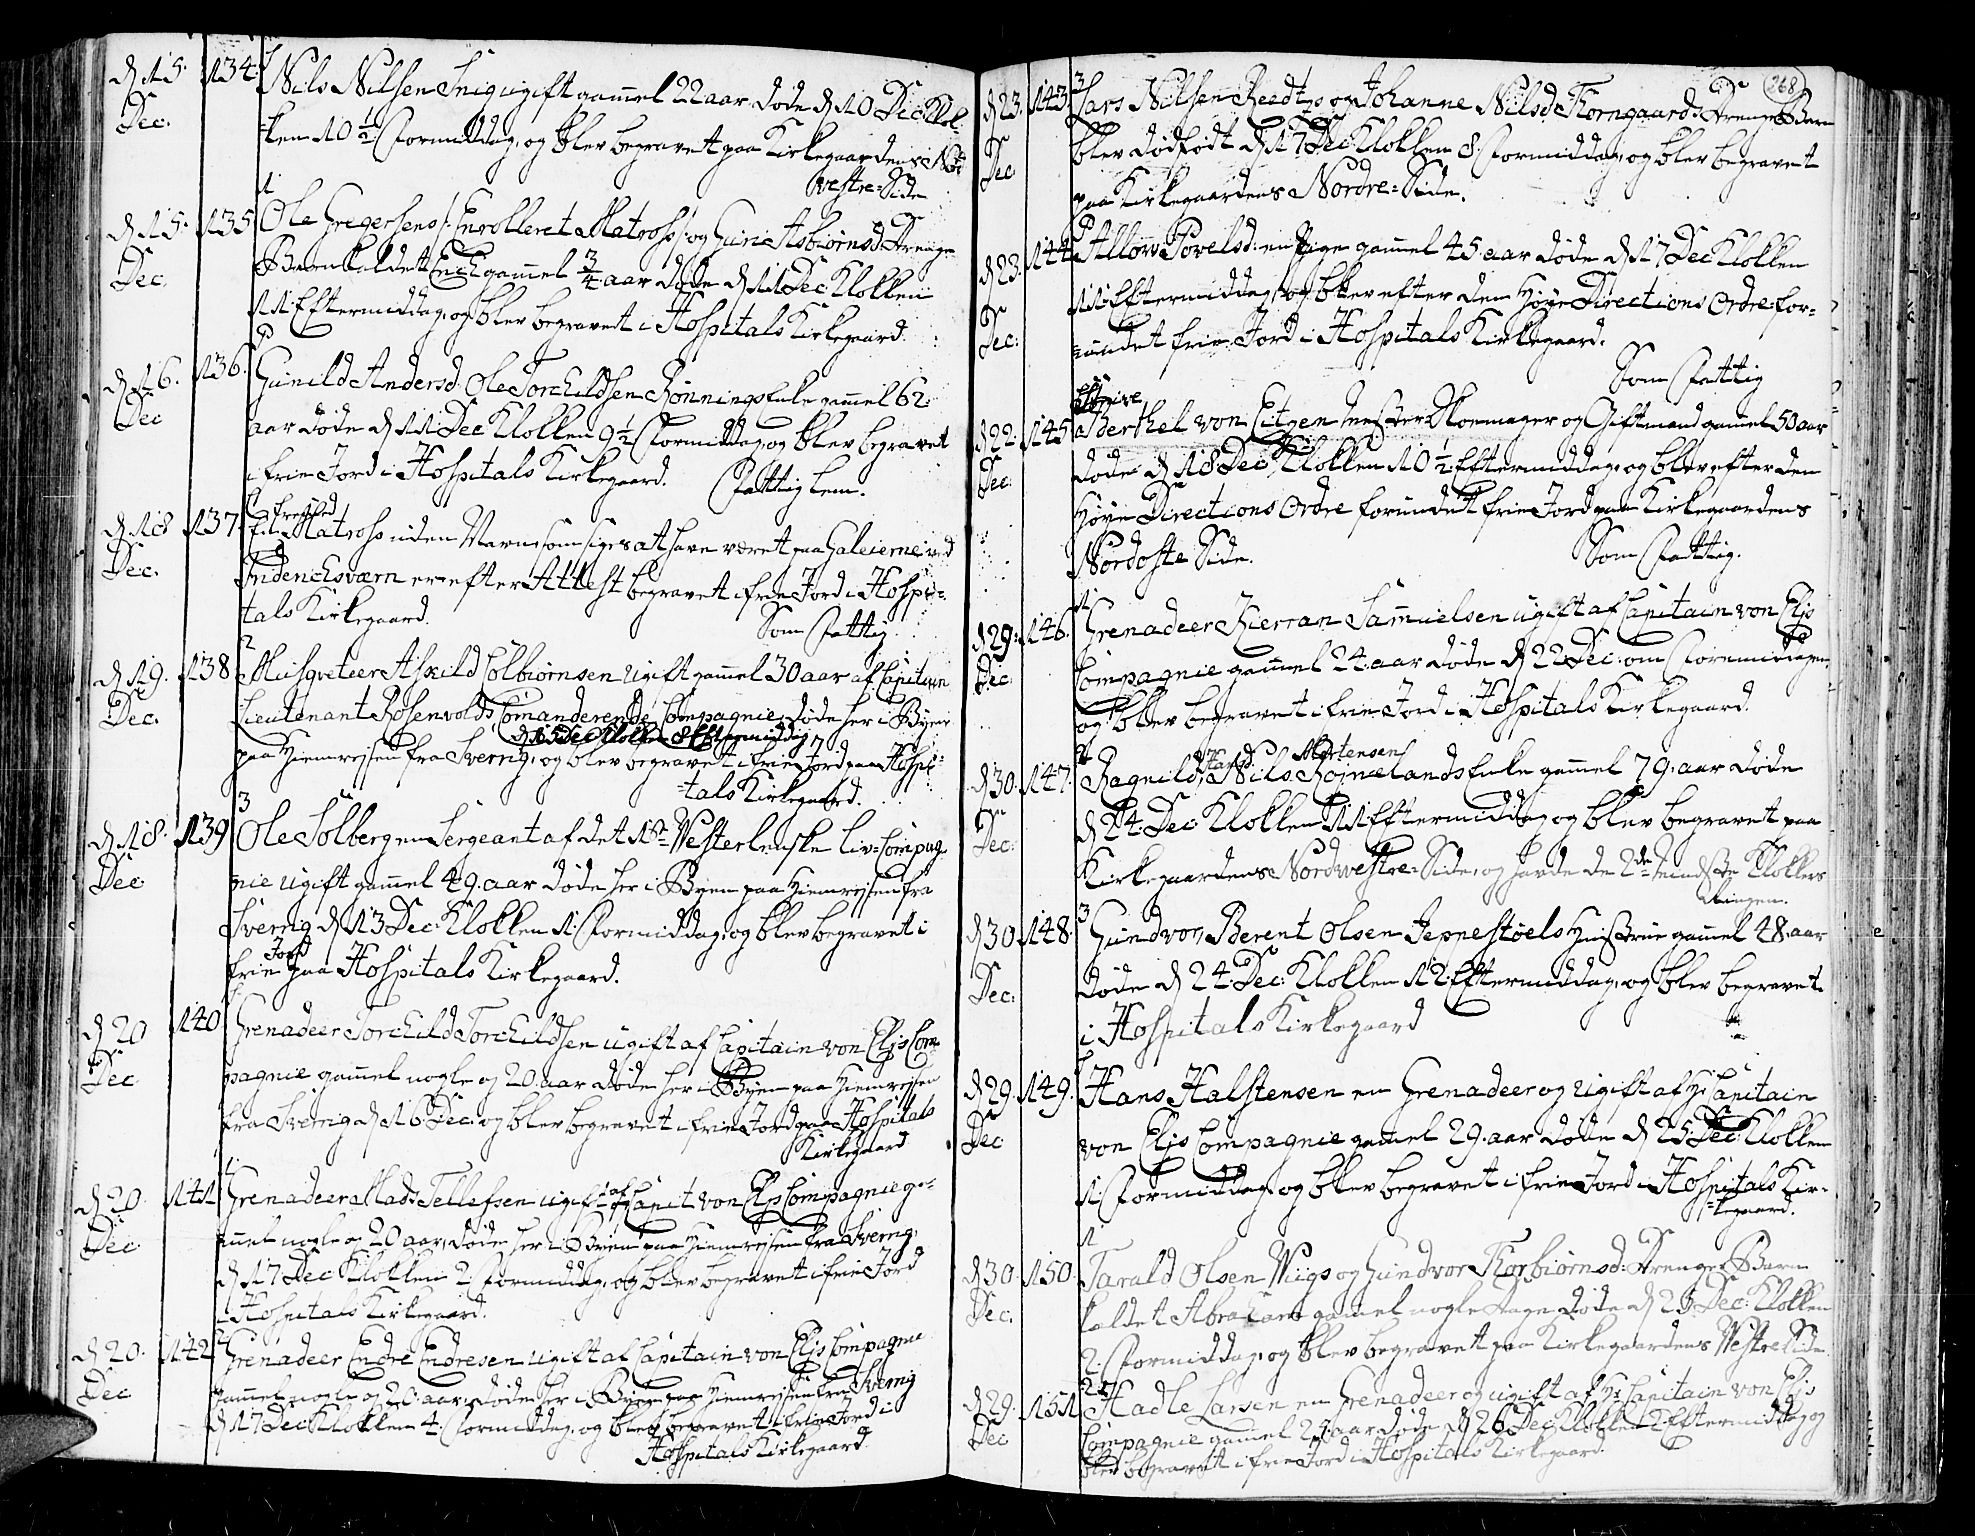 d 15. 134. Nils Nilsen ugift gamel 22 aar døde d 10 Dec: Klok-
Dec. =ken 10 ½ Formiddag, og blev begravet paa Kirkegaardens Nor
vestre=Side
1
d 15. 135 Ole Gregersens /: Enrolleret Matross :/ og Guri Asbiørnsd: Drenge
Dec. Barn kaldet Erich gamel ¾ aar døde d 11 Dec Klokken
11 Eftermiddag, og blev begravet i Hospitals Kirkegaard.
d 16. 136. Gunild Andersd: Ole Torchildsen Rønnings Enke gamel 62
Dec aar døde d 11 Dec Klokken 9 ½ Formiddag, og blev begravet
i frie Jord i Hospitals Kirkegaard. Fattig Lem.
fremed
d 18 137. En Matross uden Navn som siges at have været paa Galeierne ved
Dec. Fridenchsværn er efter Attest begravet i frie Jord i Hospi=
tals Kirkegaard.
Som Fattig.
2
d 19. 138 Musqveteer Askild Colbiørnsen ugift gamel 30 aar af Capitain
Dec. Lieutenant Rosenvolds Comanderende Compagnie, døde her i Byen
d 15 Dec Klokken 8 Eftermiddag
paa Hiemreysen fra Sverrig, og blev begravet i frie Jord paa Hospi=
=tals Kirkegaard.
3
d 18. 139 Ole Solberg en Sergeant af det 1ste Vesterlenske Liv=Compag
Dec nie ugift gamel 49. aar døde her i Byen paa Hiemreysen fra
Sverrig d 13 Dec: Klokken 1. Formiddag, og blev begravet i
Jord
frie paa Hospitals Kirkegaard.
d 20 140 Grenadeer Torchild Torchildsen ugift af Capitain von Eljs Com
Dec pagnie gamel nogle og 20. aar døde her i Byen paa Hiemreysen
fra Sverrig d 16 Dec: og blev begravet i frie Jord paa Hospitals
Kirkegaard
d 20. 141 Grenadeer Mads Tellefsen ugift af Capit von Eljs Compagnie ga=
Dec mel nogle og 20 aar, døde her i Byen paa Hiemreysen fra Sverrig,
d 17 Dec Klokken 2 Formiddag, og blev begravet i frie Jord
i Hospitals Kirkegaard.
2
d 20. 142 Grenadeer Endre Endresen ugift af Capitain von Eljs Compagnie
Dec gamel nogle og 20. aar, døde her i Byen paa Hiemreysen fra Sverrig
d 17 Dec Klokken 4. Formiddag, og blev begravet i frie Jord i
Hospitals Kirkegaard
268
3
d 23. 143. Lars Nilsen Reedtz og Johanne Nilsd Korngaards Drenge Barn
Dec blev dødfødt d 17 Dec: Klokken 8. Formiddag, og blev begravet
paa Kirkegaardens Nordre=Side.
d 23. 144. Allow Povelsd: en Pige gamel 45 aar døde d 17 Dec Klokken
Dec: 11 Eftermiddag, og blev efter den Høye Directions Ordre for=
=undet frie Jord i Hospitals Kirkegaard.
Som Fattig
d 22. 145 Berthel von Eitzen Mester Skomager og Giftmand gamel 50 aar
Dec: døde d 18 Dec Klokken 10 ½ Eftermiddag, og blev efter den
Høye Directions Ordre forundet frie Jord paa Kirkegaardens
Nordoste Side. Som Fattig.
1
d 29. 146. Grenadeer Kierran Samuelsen ugift af Capitain von Eljs
Dec: Compagnie gamel 24. aar døde d 22 Dec: om Formiddagen,
og blev begravet i frie Jord i Hospitals Kirkegaard.
Hansd: Mortensen
d 30. 147. Ragnild, Nils Røjnelands Enke gamel 79. aar døde
Dec: d 24. Dec: Klokken 11 Eftermiddag, og blev begravet paa
Kirkegaardens Nordvestre=Side, og havde de 2de mindste Klokkers
Ringen.
3
d 30. 148. Gundvor, Berent Olsen Jepnestøels Hustrue gamel 48. aar
Dec: døde d 24. Dec: Klokken 12. Eftermiddag, og blev begravet
i Hospitals Kirkegaard
d 29. 149. Hans Halstensen en Grenadeer og ugift af Hr Capitain
Dec von Eljs Compagnie gamel 29. aar døde d 25. Dec: Klokken
1. Formiddag, og blev begravet i frie Jord i Hospitals Kir-
=kegaard.
1
d 30. 150. Tarald Olsen Wiigs og Gundvor Thorbiørnsd: Drenge Barn
Dec. kaldet Abraham gamel nogle Dage døde d 25 Dec: Klokken
2. Formiddag, og blev begravet paa Kirkegaardens Vestre Side
2
d 29. 151. Hadle Larsen en Grenadeer og ugift af Hr Capitain von Eljs
Dec Compagnie gamel aar døde d 26 Dec Klokken 2 Eftermiddag og
blev begravet i frie Jord i Hospitals Kirkegaard.